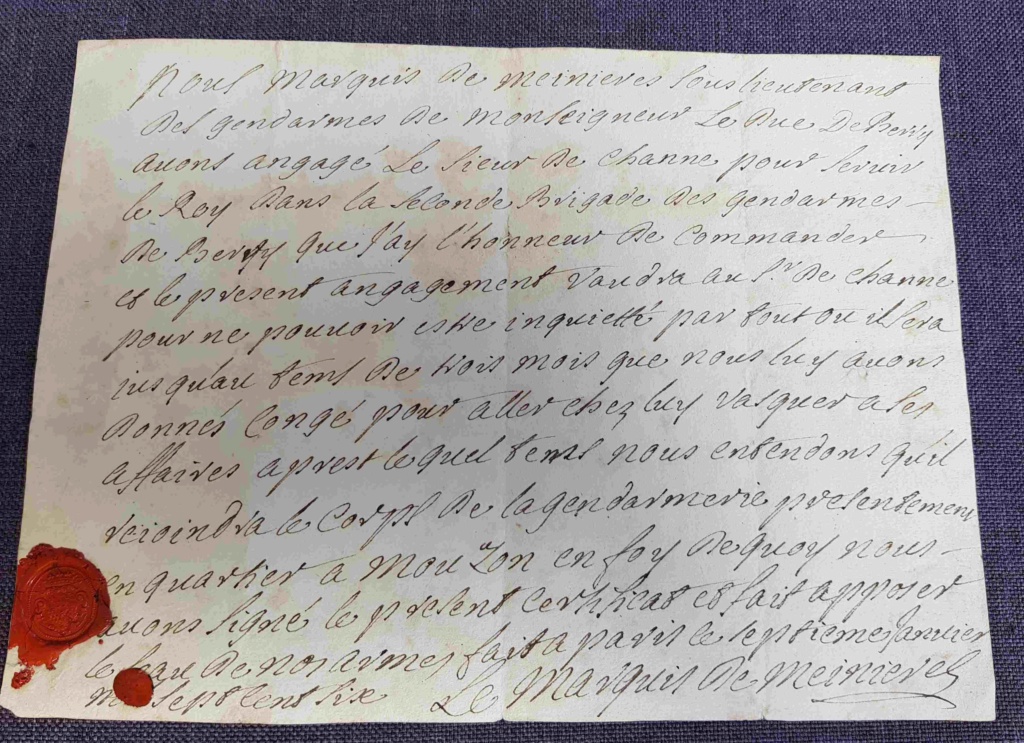 Nous Marquis De Meinieres Sous lieutenant
Des gendarmes De Monseigneur Le Duc De Berry
avons angagé Le Sieur De Channe pour servir
le Roy Dans la seconde Brigade Des gendarmes
De Berry que J'ay l'honneur De Commander
et le present angagement vaudra au Sr. De Channe
pour ne pouvoir estre inquietté par tout ou il sera
jusqu'au tems De trois mois que nous luy avons
Donnés Congé pour aller chez luy vasquer a ses
affaires aprest lequel tems nous entendons qu'il
rejoindra le Corps De la gendarmerie presentement
en quartier a Mouzon en foy De quoy nous
avons signé le present Certificat et fait apposer
le De nos armes fait a paris le septieme Janvier
sept Cent six Le Marquis De Meinieres